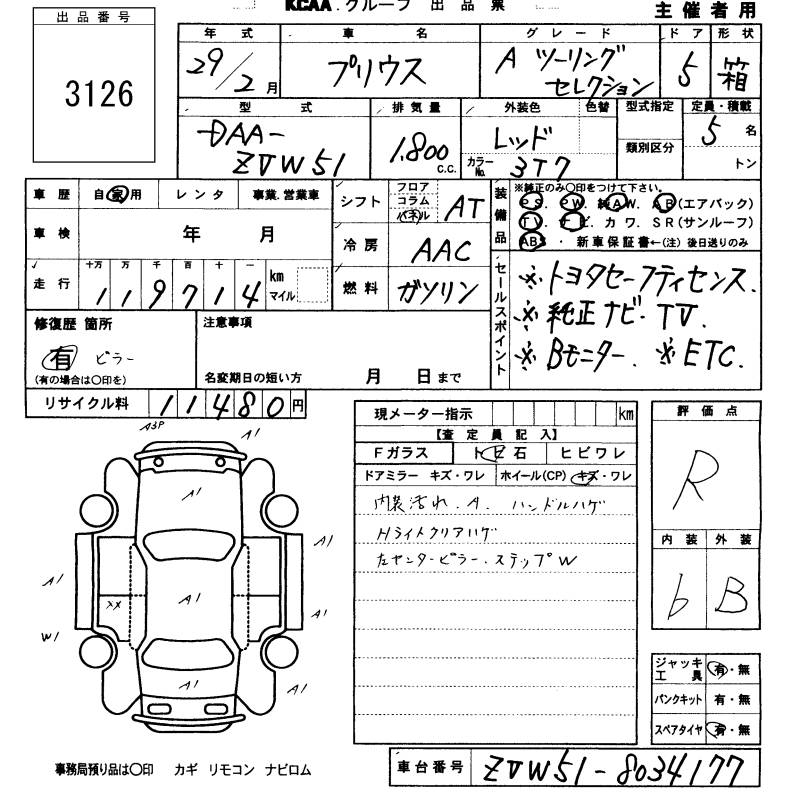 KCAA.グループ 出品票
主催者用
出品番号
3126
年式 車名 グレード ドア 形状
29/2月 プリウス Aツーリングセレクション 5 箱
型式 排気量 外装色 色替 型式指定 定員・積載
DAA-ZVW51 1,800 C.C. レッド 5名
カラーNo. 3T7 類別区分 トン
車歴 自家用 レンタ 事業.営業車
車検 年 月
走行 十万 万 千 百 十 一
119714 km マイル
シフト フロア コラム パネル AT
冷房 AAC
燃料 ガソリン
装備品 ※純正のみ○印をつけて下さい。
PS. PW. 純AW. AB(エアバック)
TV. ナビ. カワ. SR(サンルーフ)
ABS. 新車保証書←(注)後日送りのみ
セールスポイント
※トヨタセーフティセンス.
※純正ナビ.TV.
※Bモニター. ※ETC.
修復歴 箇所
有 ピラー
(有の場合は○印を)
注意事項
名変期日の短い方 月 日まで
リサイクル料 11480円
A3P A1
A1
A1 A1
XX A1 A1
W1
A1 A1
現メーター指示 km
【査定員記入】
Fガラス トビ石 ヒビワレ
ドアミラー キズ・ワレ ホイール(CP) キズ・ワレ
内装汚れ.A. ハンドルハゲ
Hライトクリアハゲ
左センターピラー.ステップW
評価点
R
内装 外装
b B
ジャッキ工具 有・無
パンクキット 有・無
スペアタイヤ 有・無
事務局預り品は○印 カギ リモコン ナビロム
車台番号 ZVW51-8034177